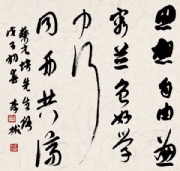 思想自由兼
容并包好学
力行
同舟共济
蔡元培先生语
戊子